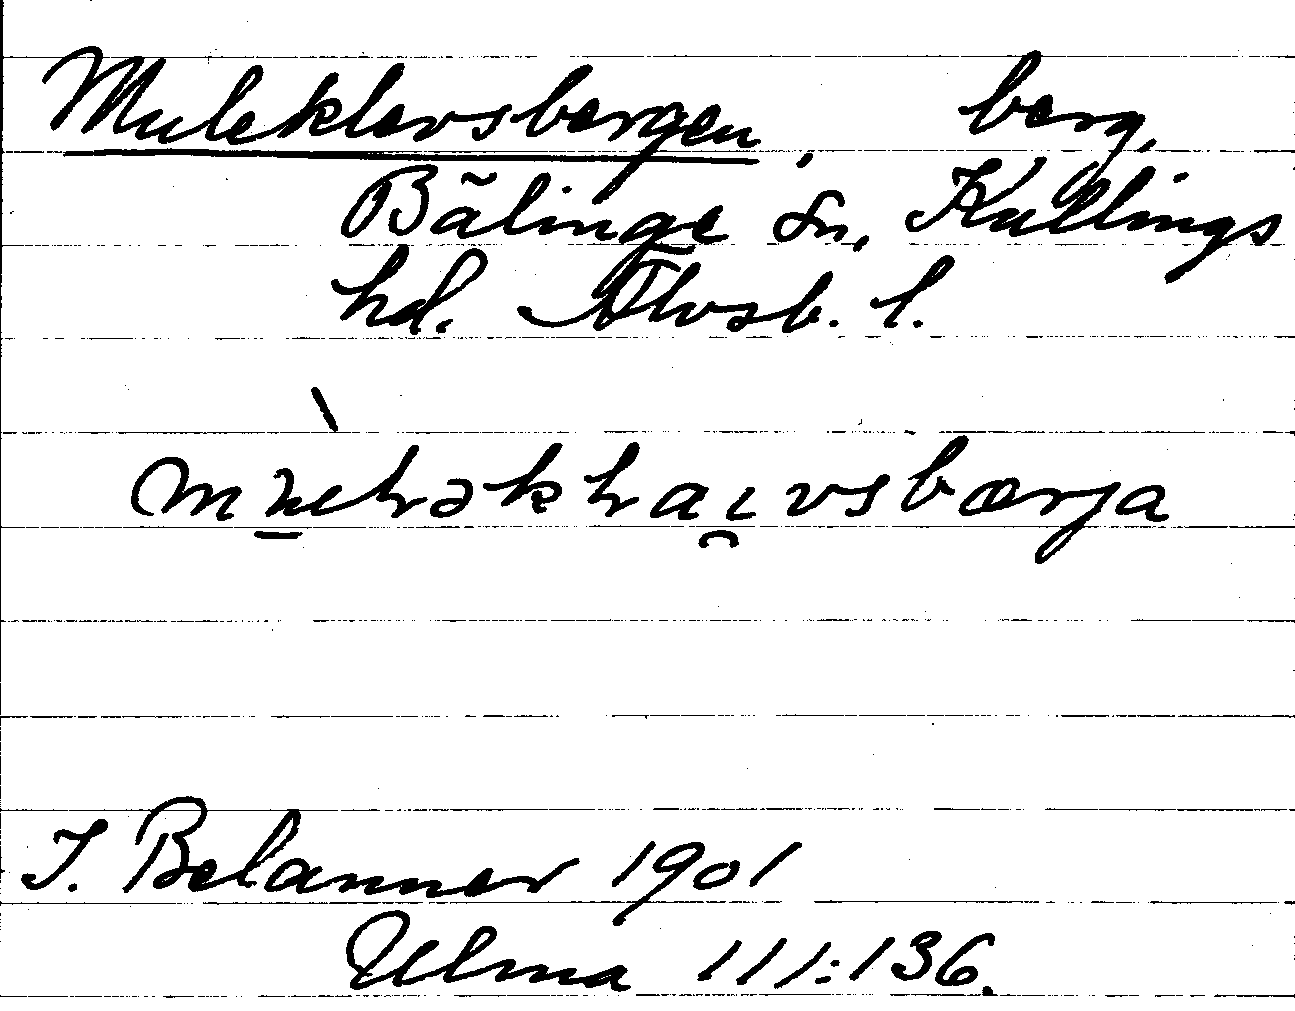 Muleklevsbergen, berg,
Bälinge sn, Kullings
hd. Älvsb. l.
J. Belanner 1901
Ulma 111:136.